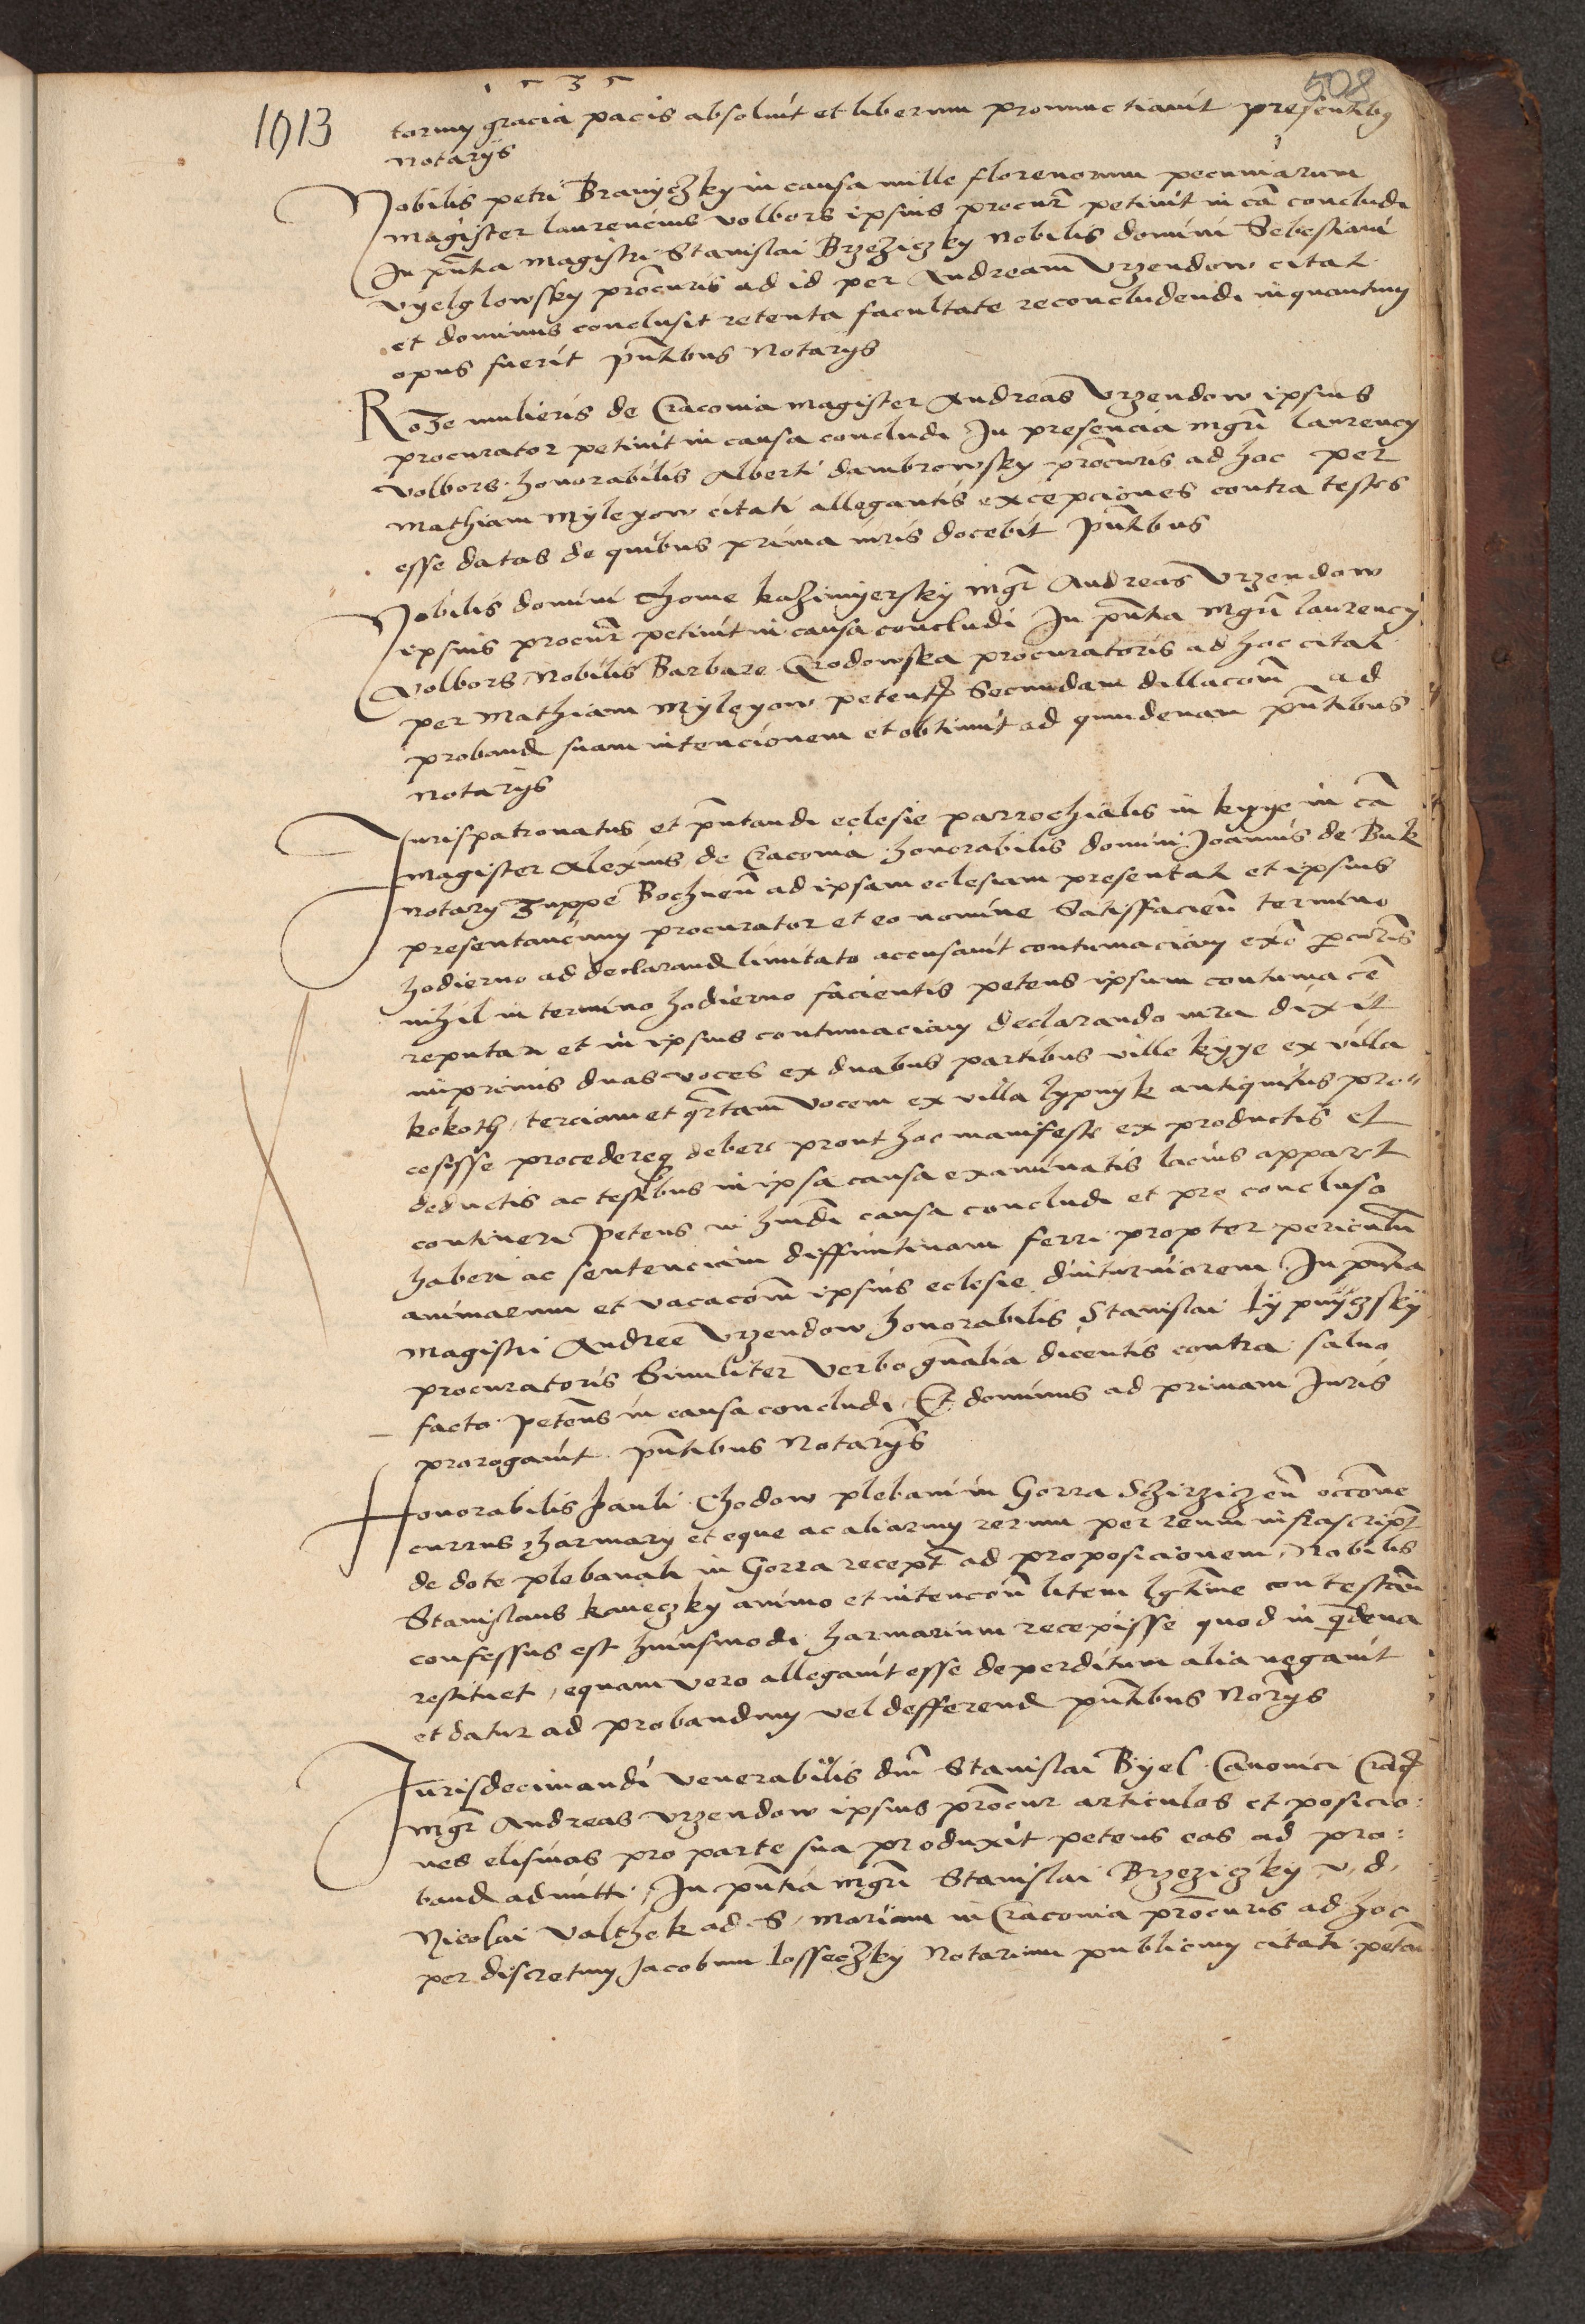 1535
508
1913
torum gracia pacis absoluit et liberum pronunctiauit presentibus
Notarijs
Nobilis petri Branyczky in causa mille florenorum pecuniarum
magister laurencius volbors ipsius procur petiuit in ca concludi
In pntia magistri Stanislai Brzeziczky Nobilis domini Sebestiani
vyelglowsky procuris ad id per Andream Vrzendow citat
et dominus conclusit retenta facultate reconcludendi inquantum
opus fuerit pntibus Notarijs
Roze mulieris de Cracouia magister Andreas Vrzendow ipsius
procurator petiuit in causa concludi In presencia mgri laurency
volbors honorabilis Alberti dambrowsky procuris ad hoc per
Mathiam Myleyow citati allegantis excepciones contra testes
esse datas de quibus prima iuris docebit pntibus
Nobilis domini Thome kazimyersky mgr Andreas Vrzendow
ipsius procur petiuit in causa concludi In pntia mgri laurency
Volbors Nobilis Barbare Grodowska procuratoris ad hoc citat
per Mathiam Myleyow petent Secundam dillacom ad
proband suam intencionem et obtinuit ad quindenam pntibus
Notarijs
Jurispatronatus et pntandi eclesie parrochialis in kyye in ca
magister Alexius de Cracouia honorabilis domini Joannis de Buk
notary zuppe Bochnen ad ipsam eclesiam presentat et ipsius
presentancium procurator et eo nomine Satisfacien termino
hodierno ad declarand limitato accusauit contumaciam ex pcuris
nihil in termino hodierno facientis petens ipsum contumace
reputari et in ipsius contumaciam declarando iura dixit
inprimis duas voces ex duabus partibus ville kyye ex villa
kokoth, terciam et qrtam vocem ex villa lypnyk antiquitus pro"
cesisse procedereq debere prout hoc manifeste ex productis et
deductis ac testibus in ipsa causa examinatis lacius apparet
contineri Petens in hmdi causa concludi et pro concluso
haberi ac sentenciam diffinitiuam ferri propter periculum
animarum et vacacom ipsius eclesie diuturniorem In pntia
magistri Andree Vrzendow honorabilis Stanislai lypnyczsky
procuratoris Similiter verbo gnalia dicentis contra saluo
facto petens in causa concludi Et dominus ad primam Juris
prorogauit pntibus Notarijs
Honorabilis pauli Chodow plebani in Gorra Sczirziczen occone
currus harmary et eque ac aliarum rerum per reum infrascript
de dote plebanali in Gorra recept ad proposicionem Nobilis
Stanislaus kaneczky animo et intencon litem lgtime contestan
confessus est huiusmodi harmarium recepisse quod in qdena
restituet, equam vero allegauit esse deperditum alia negauit
et datur ad probandum vel defferend pntibus Norijs
Jurisdecimandi venerabilis dni Stanislai Byel Canonici Crac
mgr Andreas Vrzendow ipsius procur articulos et posicio:
nes elisiuas pro parte sua produxit petens eas ad pro:
band admitti, In pntia mgri Stanislai Brzeziczky v. d.
Nicolai Valthek ad S. Mariam in Cracouia procuris ad hoc
per discretum Jacobum losseczky Notarium publicum citati peten